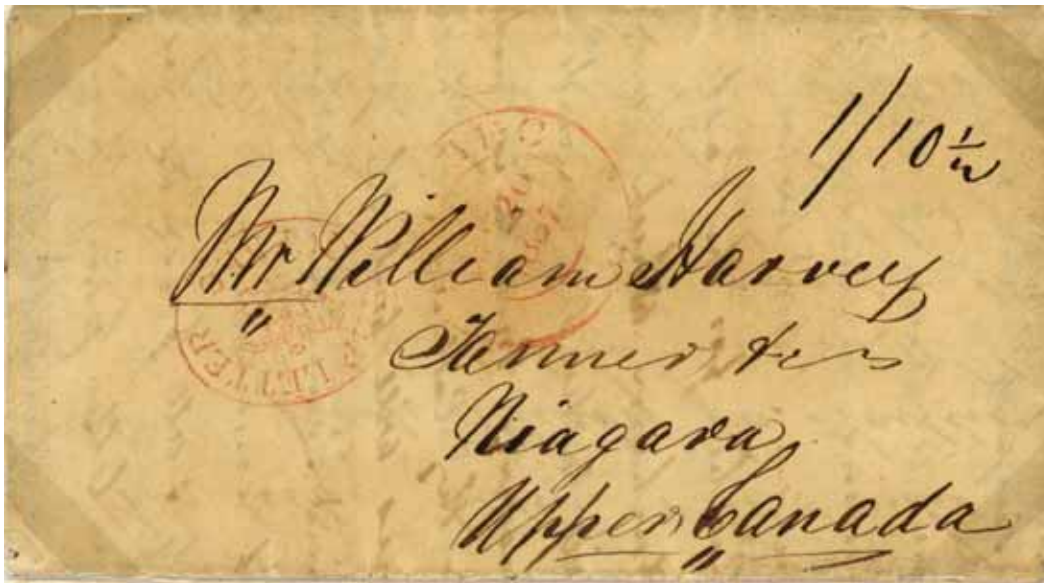 1/10½
Mr William Harvey
Tanner &c
Niagara
Upper Canada
LETTER
20